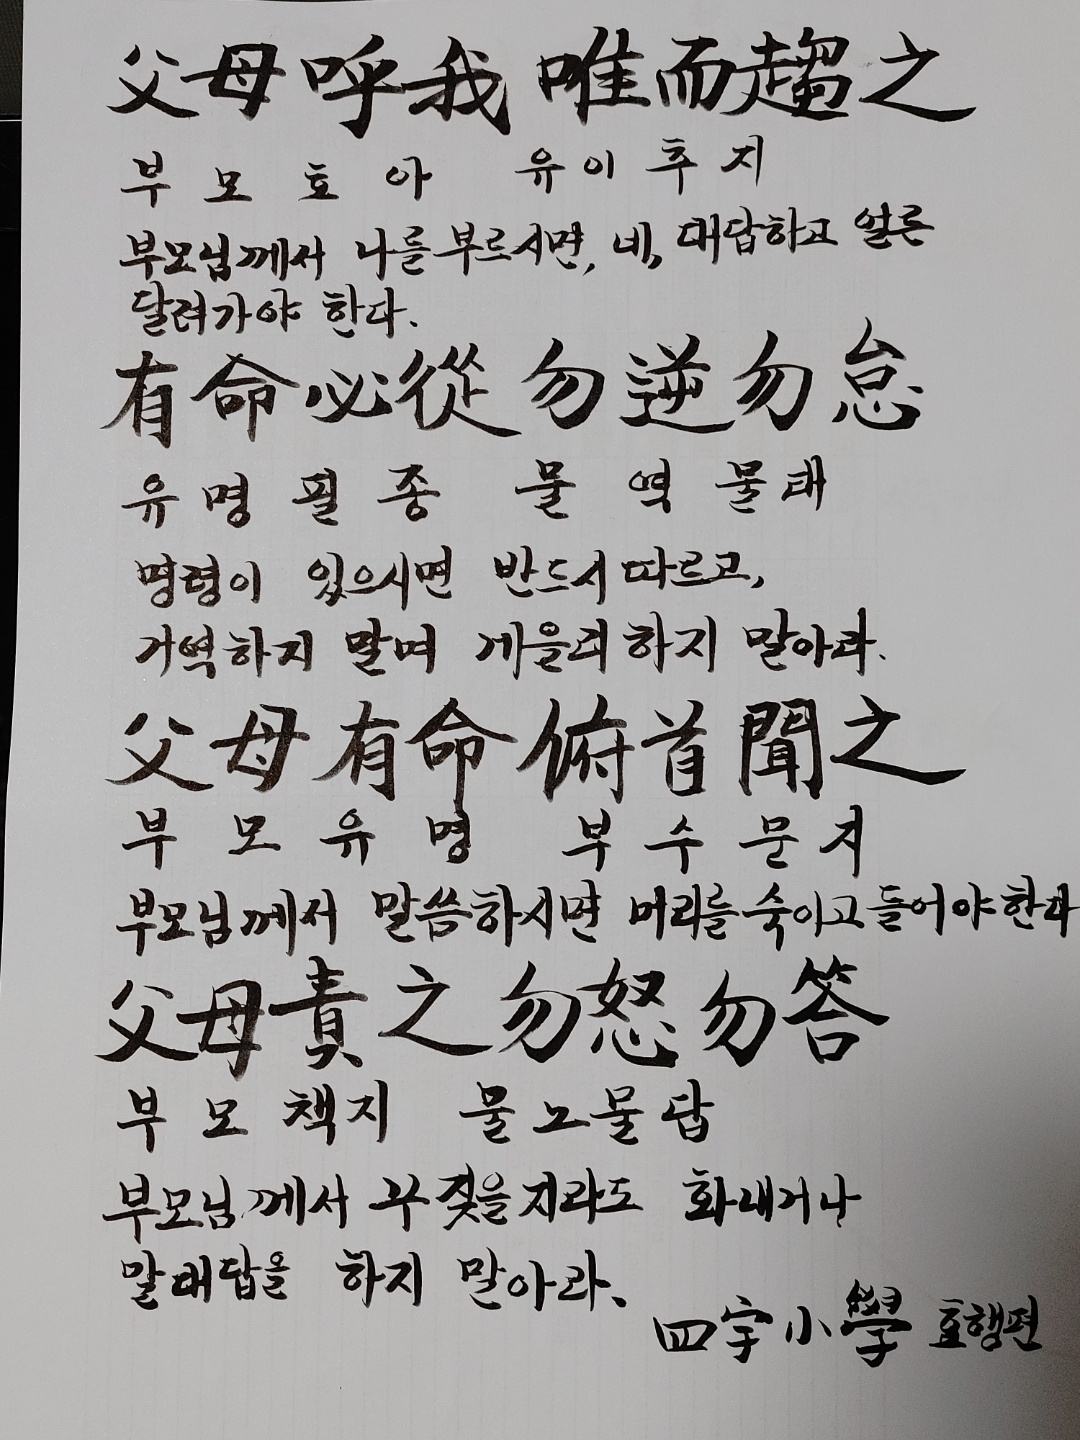 父母呼我 唯而趨之
부모호아 유이추지
부모님께서 나를 부르시면, 네, 대답하고 얼른
달려가야 한다.
有命必從 勿逆勿怠
유명필종 물역물태
명령이 있으시면 반드시 따르고,
거역하지 말며 게을리 하지 말아라.
父母有命 俯首聞之
부모유명 부수문지
부모님께서 말씀하시면 머리를 숙이고 들어야한다
父母責之 勿怒勿答
부모책지 물노물답
부모님께서 꾸짖을지라도 화내거나
말대답을 하지 말아라.
四字小學 효행편